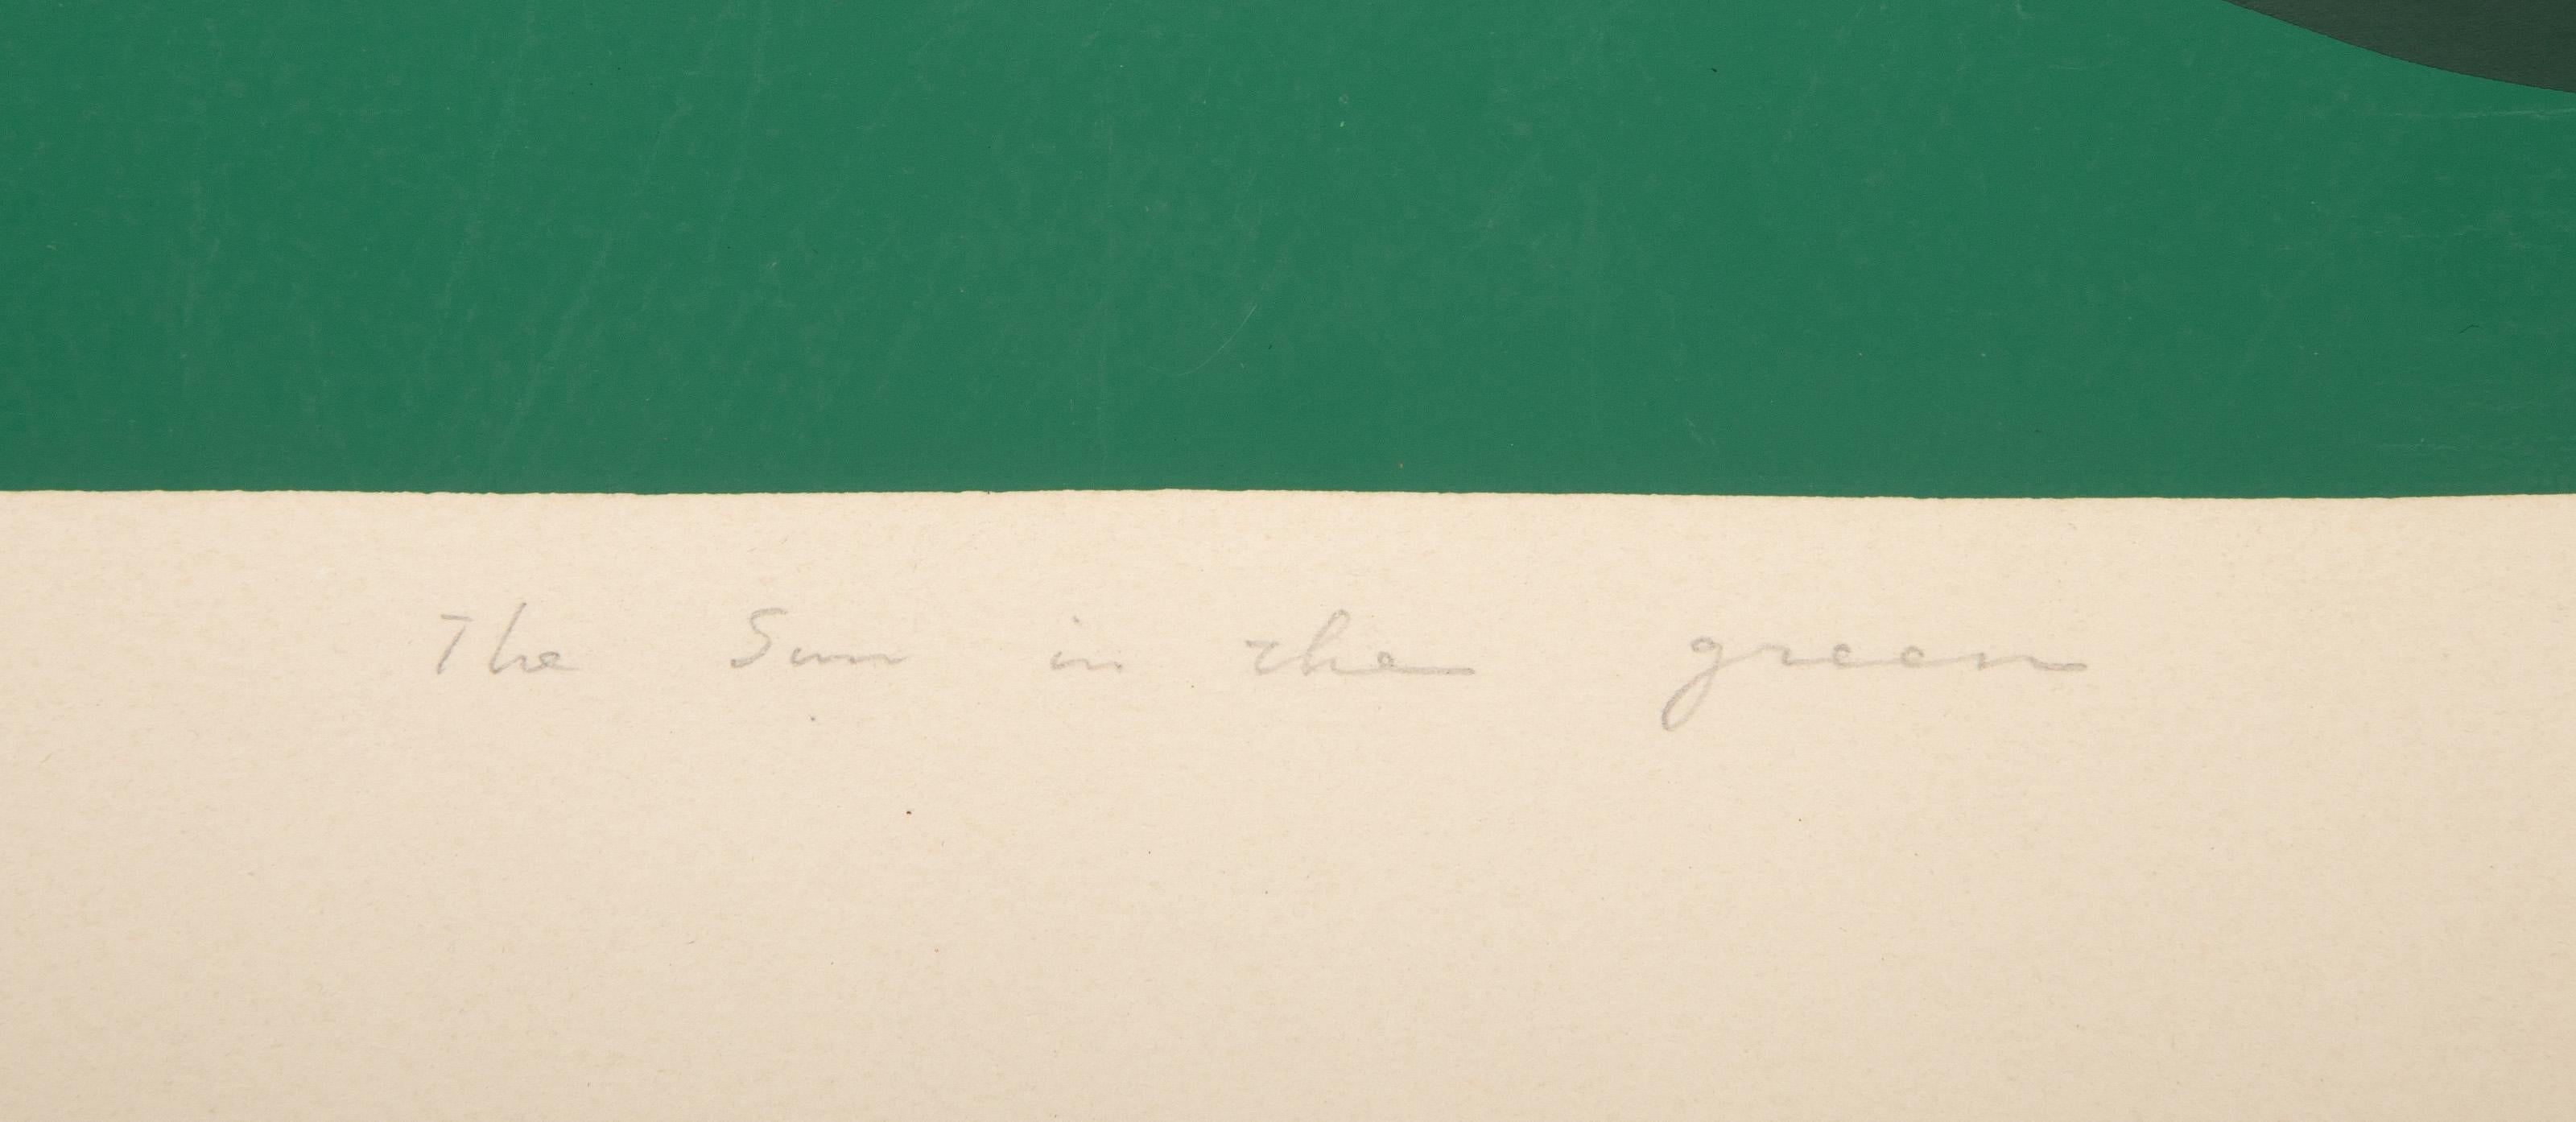 The Sun in the green